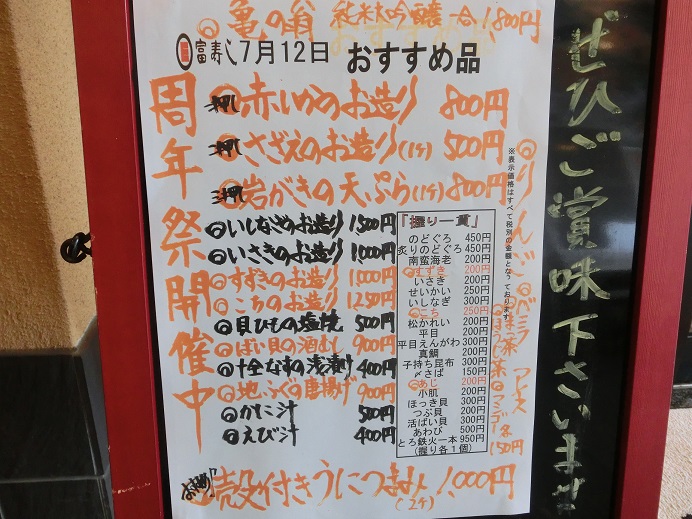 亀の翁 純米大吟醸 一合 1,800円
富寿し 7月12日 おすすめ品
周年祭開催中
一押し ◎赤いかのお造り 800円
二押し ◎さざえのお造り(1ケ) 500円
三押し ◎岩がきの天ぷら(1ケ) 800円
◎いしなぎのお造り 1,500円
◎いさきのお造り 1,000円
◎すずきのお造り 1,000円
◎こちのお造り 1,250円
◎貝ひもの塩焼 500円
◎ばい貝の酒むし 900円
◎十全なすの浅漬け 400円
◎地ふぐの唐揚げ 900円
◎かに汁 500円
◎えび汁 400円
「握り一貫」
のどぐろ 450円
炙りのどぐろ 450円
南蛮海老 200円
◎すずき 200円
いさき 200円
せいかい 250円
いしなぎ 300円
◎こち 250円
松かれい 200円
平目 200円
平目えんがわ 300円
真鯛 200円
子持ち昆布 200円
〆さば 150円
◎あじ 200円
小肌 200円
ほっき貝 300円
つぶ貝 200円
活ばい貝 300円
あわび 500円
とろ鉄火一本 950円
(握り各1個)
※表示価格はすべて税別の金額となっております
◎りんご ◎バニラ アイス
◎ほうじ茶
各150円
殻付きうにつまみ 1,000円
(2ケ)
ぜひご賞味下さいませ